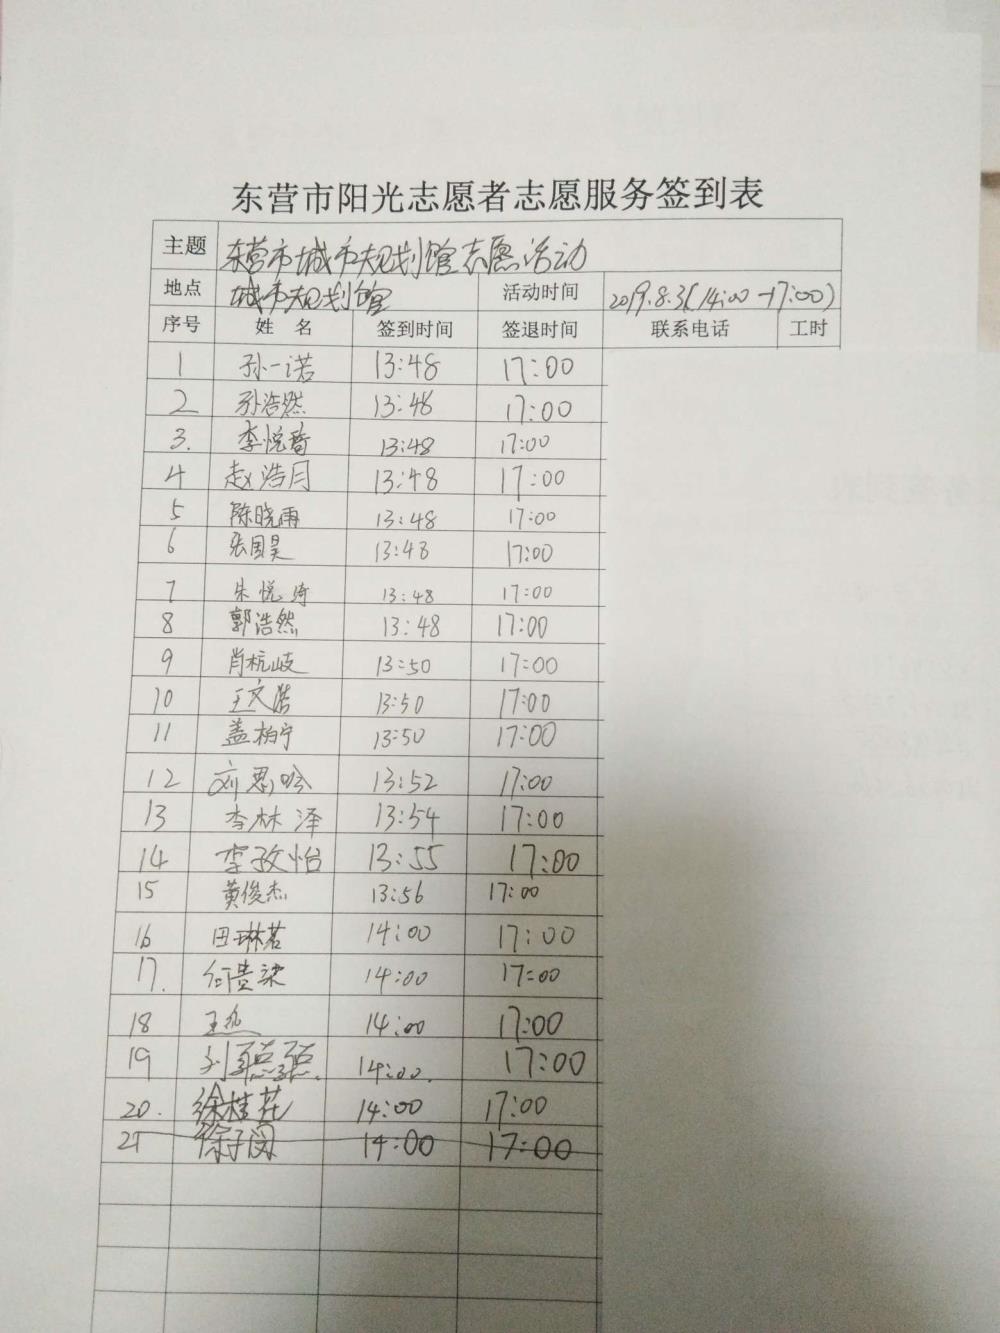 东营市阳光志愿者志愿服务签到表
主题 东营市城市规划馆志愿活动
地点 城市规划馆 活动时间 2019.8.3(14:00-17:00)
序号 姓名 签到时间 签退时间 联系电话 工时
1 孙一诺 13:48 17:00
2 孙浩然 13:48 17:00
3. 李悦 13:48 17:00
4 赵浩月 13:48 17:00
5 陈晓雨 13:48 17:00
6 张国昊 13:48 17:00
7 朱悦琦 13:48 17:00
8 郭浩然 13:48 17:00
9 肖杭岐 13:50 17:00
10 王文浩 13:50 17:00
11 盖柏宁 13:50 17:00
12 刘思吟 13:52 17:00
13 李林泽 13:54 17:00
14 李孜怡 13:55 17:00
15 黄俊杰 13:56 17:00
16 田琳茗 14:00 17:00
17. 何贵 14:00 17:00
18 王 14:00 17:00
19 刘 14:00. 17:00
20. 徐桂花 14:00 17:00
21 徐子 14:00 17:00